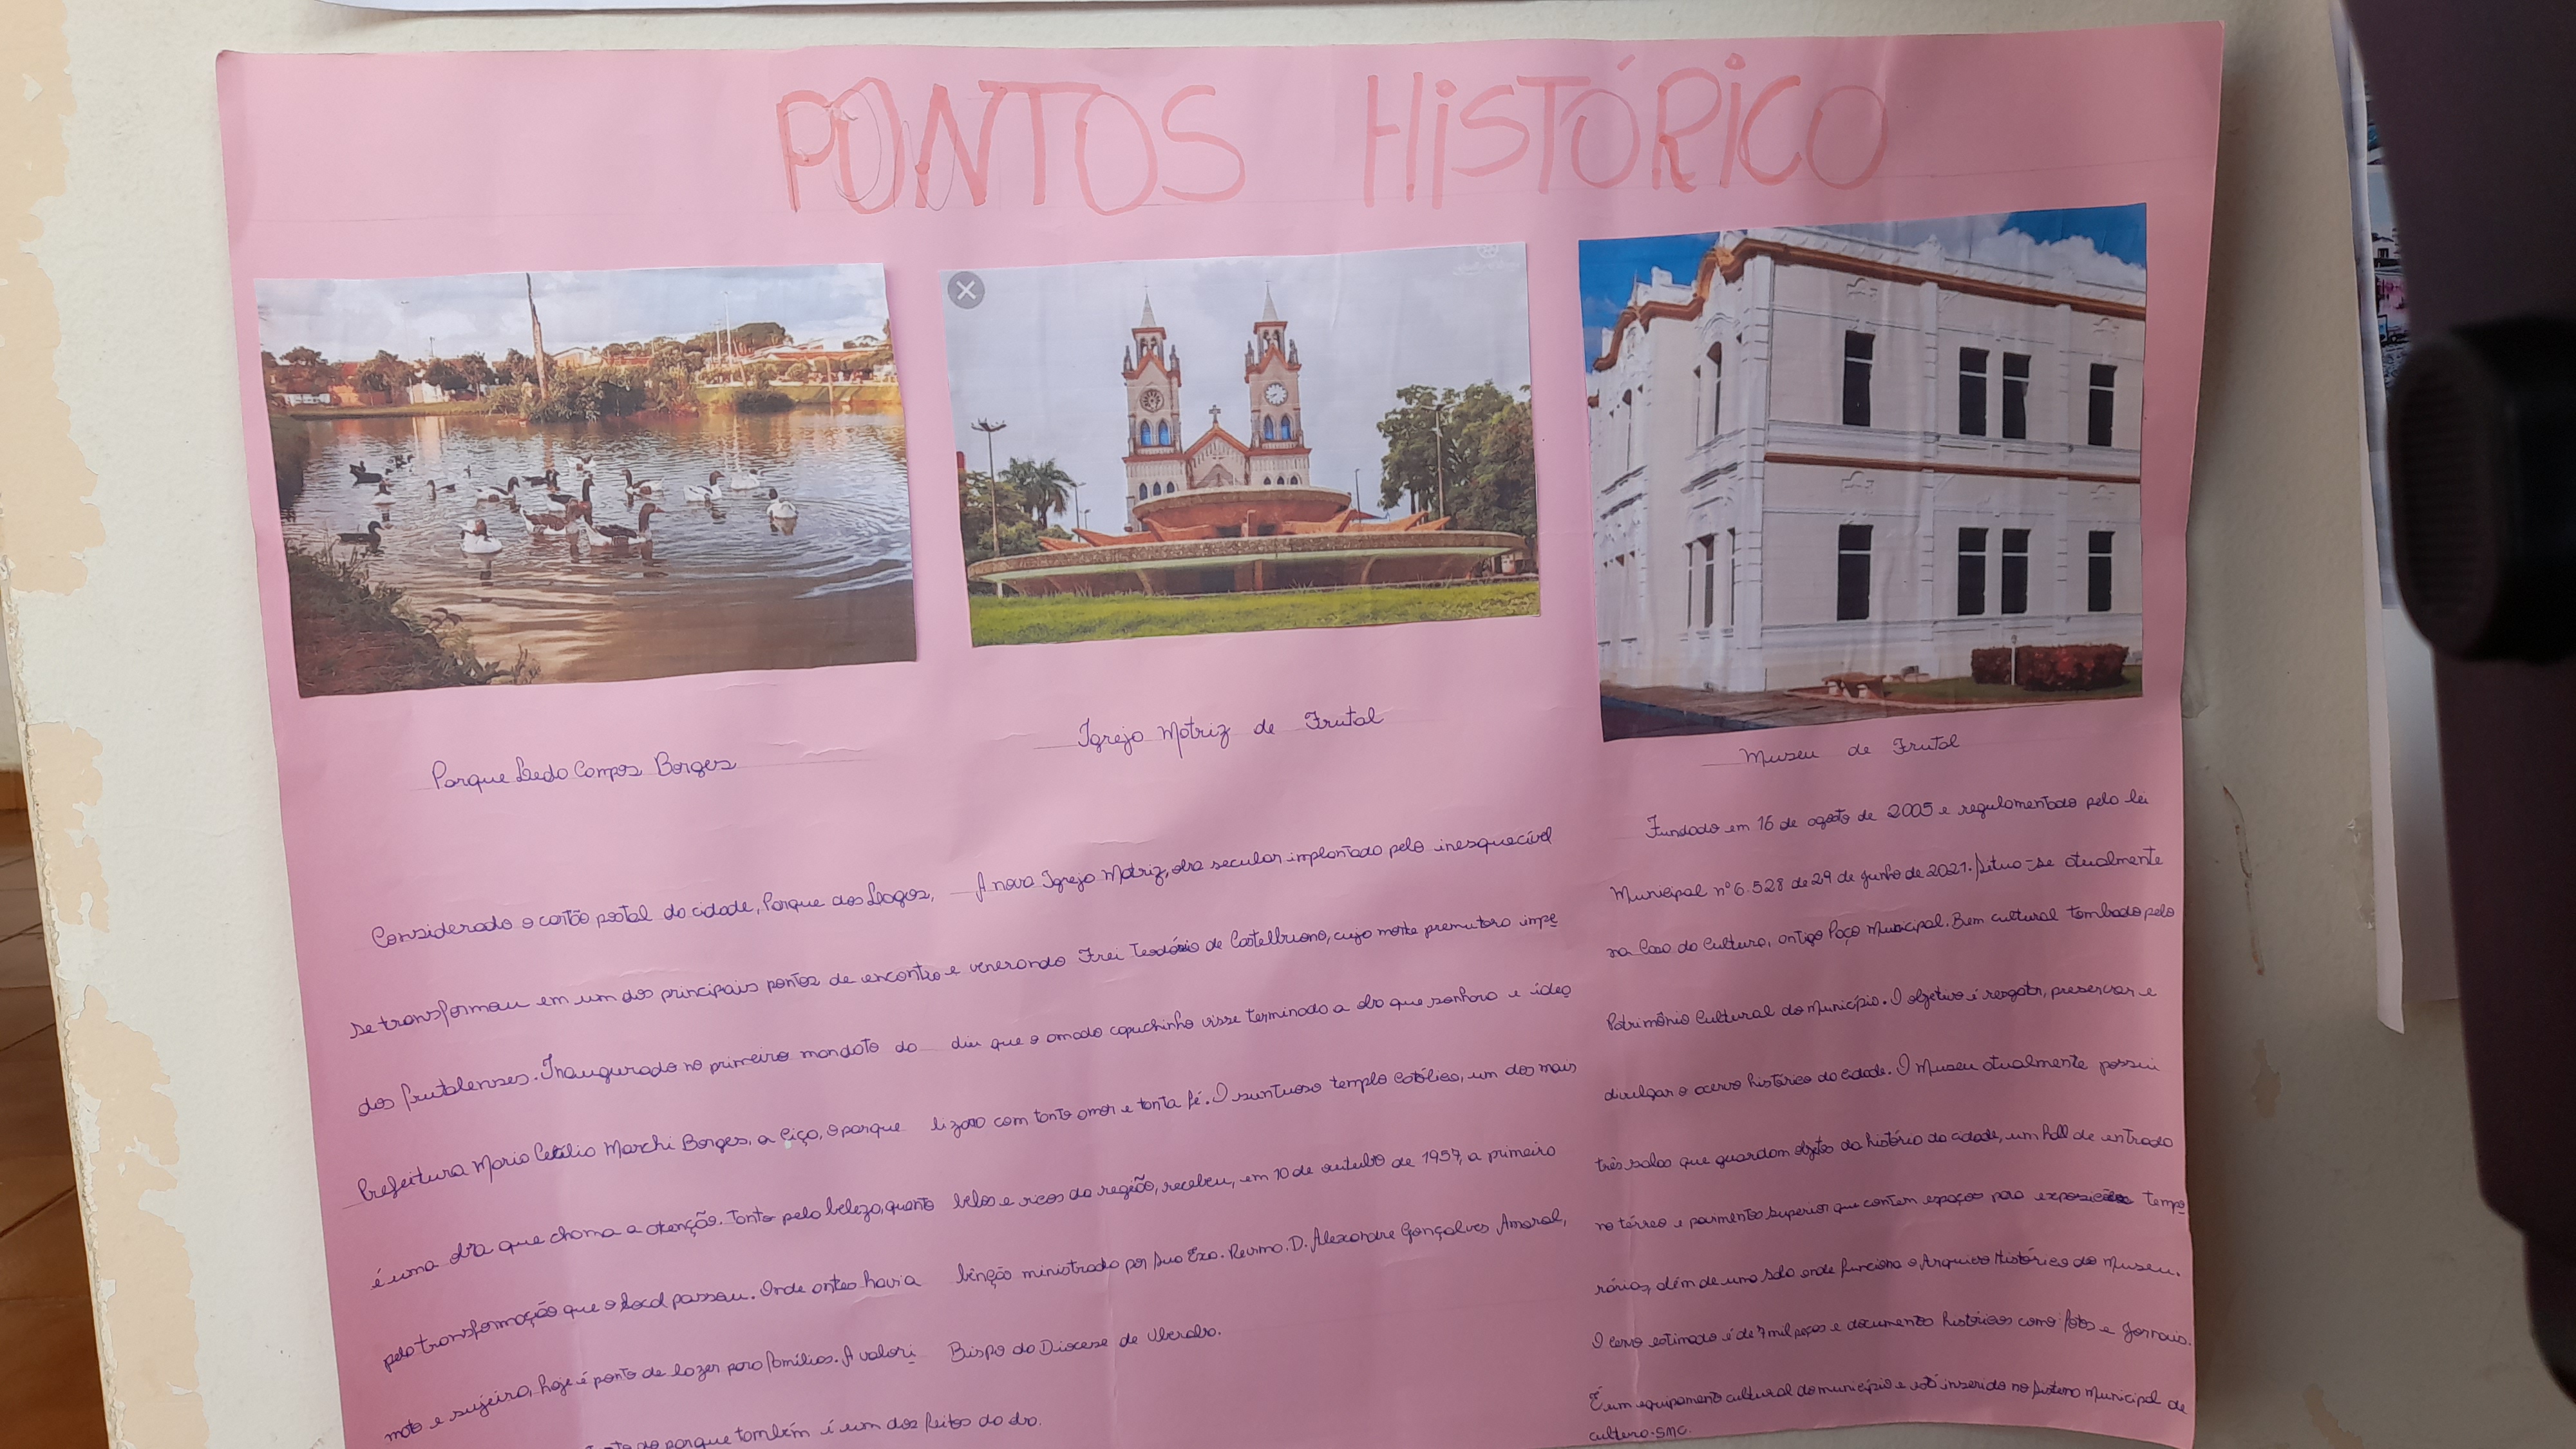 PONTOS HISTÓRICO
Parque Ledo Campos Borges
Considerado o cartão postal da cidade, Parque dos Lagos,
se transformou em um dos principais pontos de encontro
dos frutalenses. Inaugurado no primeiro mandato da
Prefeitura Maria Cecília Marchi Borges, a Ciça, o parque
é uma obra que chama a atenção. Tanto pela beleza, quanto
pela transformação que o local passou. Onde antes havia
mato e sujeira, hoje é ponto de lazer para famílias. A valori
do parque também é um dos feitos da obra.
Igreja Matriz de Frutal
A nova Igreja Matriz, obra secular implantada pelo inesquecível
e venerando Frei Teodósio de Castelbuono, cuja morte prematura impe
diu que o amado capuchinho visse terminada a obra que sonhara e idea
lizara com tanto amor e tanta fé. O suntuoso templo católico, um dos mais
belos e ricos da região, recebeu, em 10 de outubro de 1957, a primeira
bênção ministrada por Sua Exa. Revma. D. Alexandre Gonçalves Amaral,
Bispo da Diocese de Uberaba.
Museu de Frutal
Fundado em 16 de agosto de 2005 e regulamentado pela lei
Municipal nº 6.528 de 29 de junho de 2021. Situa-se atualmente
na Casa da Cultura, antigo Paço Municipal. Bem cultural tombado pelo
Patrimônio Cultural do Município. O objetivo é resgatar, preservar e
divulgar o acervo histórico da cidade. O Museu atualmente possui
três salas que guardam objetos da história da cidade, um hall de entrada
no térreo e pavmento superior que contem espaços para exposições tempo
rárias, além de uma sala onde funciona o Arquivo Histórico do Museu.
O cervo estimado é de 7 mil peças e documentos históricos como fotos e Jornais.
É um equipamento cultural do município e está inserido no Sistema Municipal de
cultura-SMC.